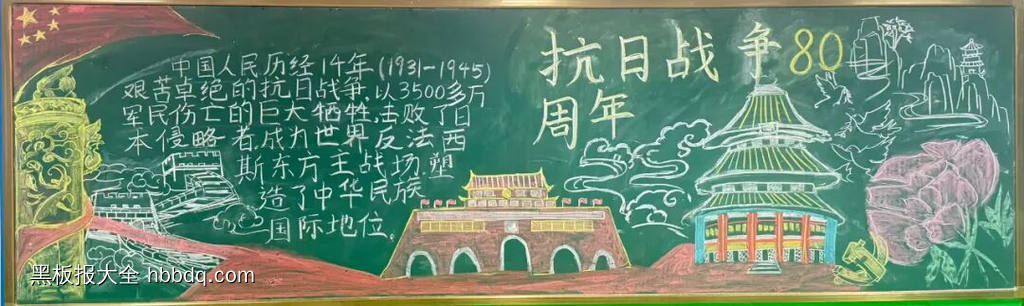 中国人民历经14年(1931-1945)
艰苦卓绝的抗日战争、以3500多万
军民伤亡的巨大牺牲,击败了日
本侵略者,成为世界反法西
斯东方主战场,塑
造了中华民族
国际地位。
抗日战争80
周年
黑板报大全 hbbdq.com